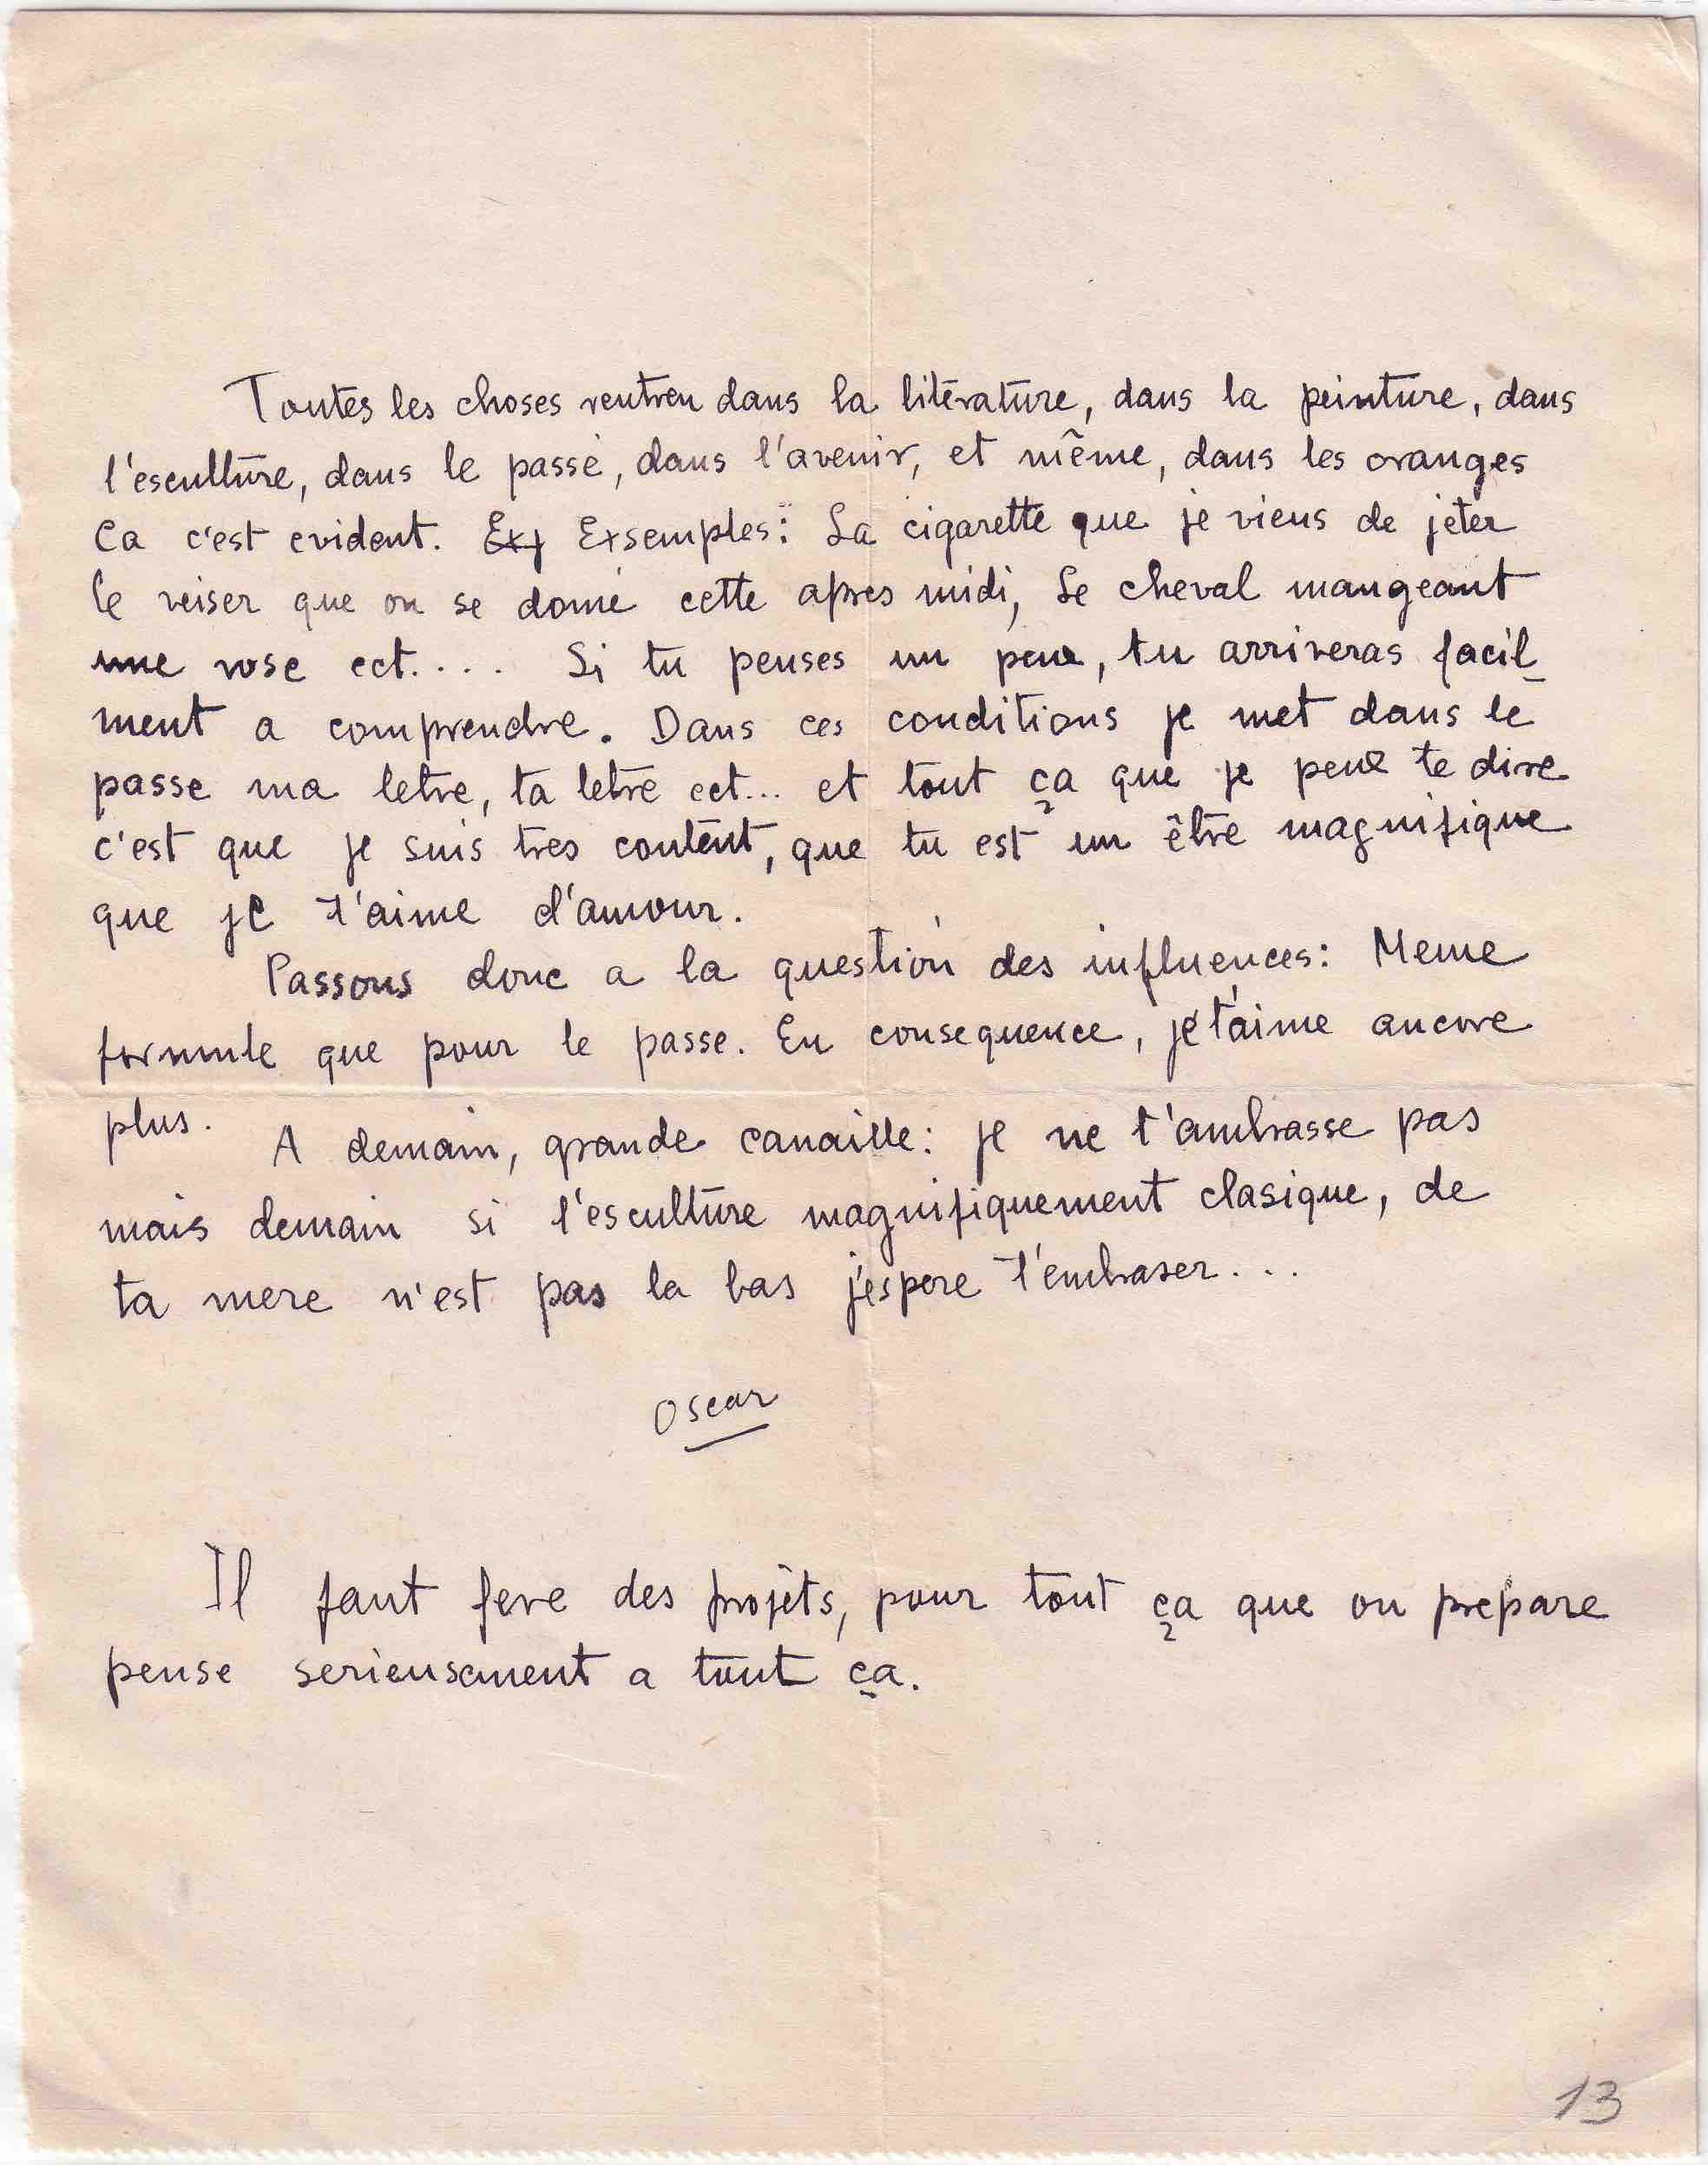 Toutes les choses rentren dans la litérature, dans la peinture, dans
l'esculture, dans le passé, dans l'avenir, et même, dans les oranges
Ca c'est evident. Exj Exsemples: La cigarette que je viens de jeter
le veiser que on se domé cette apres midi, Le cheval mangeant
une rose ect.... Si tu penses un peux, tu arriveras facil-
ment a comprendre. Dans ces conditions je met dans le
passe ma letre, ta letre ect... et tout ça que je peux te dire
c'est que je suis tres content, que tu est un être magnifique
que je t'aime d'amour.
Passons donc a la question des influences: Meme
formule que pour le passe. En consequence, je t'aime ancore
plus.
A demain, grande canaille: je ne t'ambrasse pas
mais demain si l'esculture magnifiquement clasique, de
ta mere n'est pas la bas j'espere t'embraser...
Oscar
Il faut fere des projets, pour tout ça que on prepare
pense serieusement a tout ça.
13